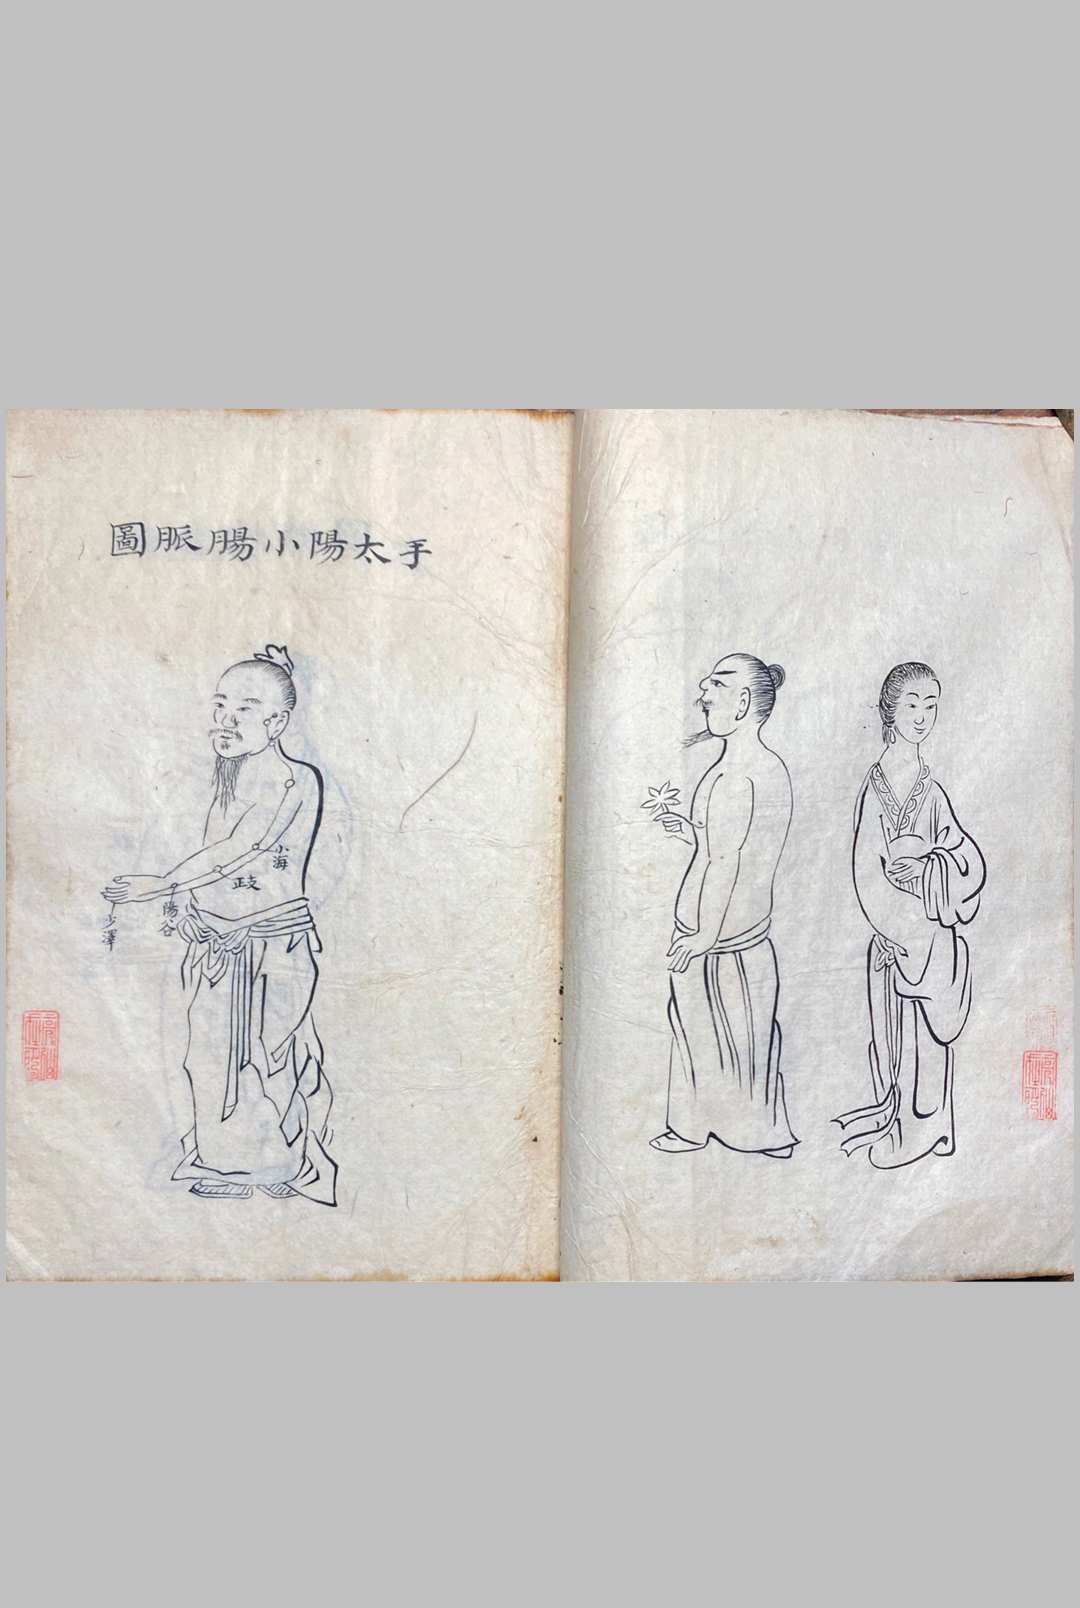 手太陽小腸脈圖
小海
支正
陽谷
少澤